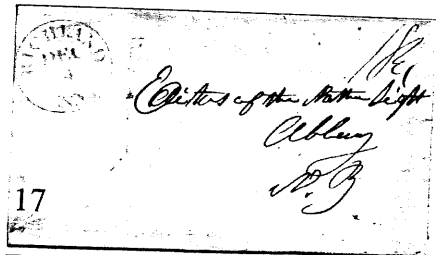 RICHLAND
DEC
Editors of the Northern Light
Albany
N.Y
17